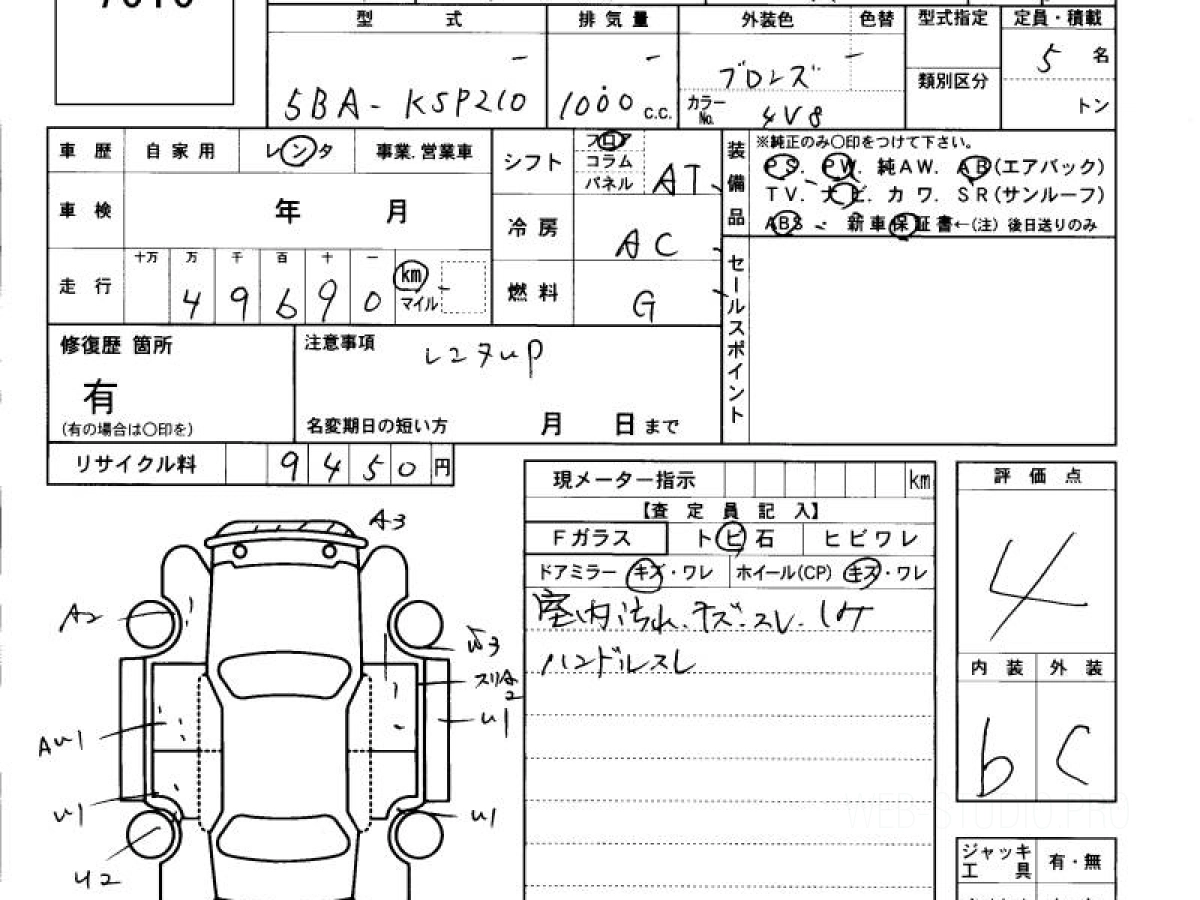 型 式 排 気 量 外装色 色替 型式指定 定員・積載
5BA - KSP210 1000 c.c. ブロンズ 5 名
カラーNo. 4V8 類別区分 トン
車 歴 自 家 用 レンタ 事業. 営業車
車 検 年 月
走 行 十万 万 千 百 十 一
4 9 6 9 0 km マイル
シフト フロア コラム パネル AT
冷 房 AC
燃 料 G
装備品 ※純正のみ〇印をつけて下さい。
PS. PW. 純AW. AB(エアバック)
TV. ナビ. カ ワ. SR(サンルーフ)
ABS 新 車 保 証 書←(注) 後日送りのみ
セールスポイント
修復歴 箇所
有
(有の場合は〇印を)
注意事項 レンタup
名変期日の短い方 月 日 まで
リサイクル料 9 4 5 0 円
現メーター指示 km
【査 定 員 記 入】
Fガラス ト ビ 石 ヒ ビ ワ レ
ドアミラー キズ・ワレ ホイール(CP) キズ・ワレ
室内汚れ. キズ. スレ.
ハンドルスレ
評 価 点
4
内 装 外 装
b C
ジャッキ 有・無
工 具
A3
A2
スリA2
U1
AU1
U1
U1
U2
WEB-STUDIO.PRO